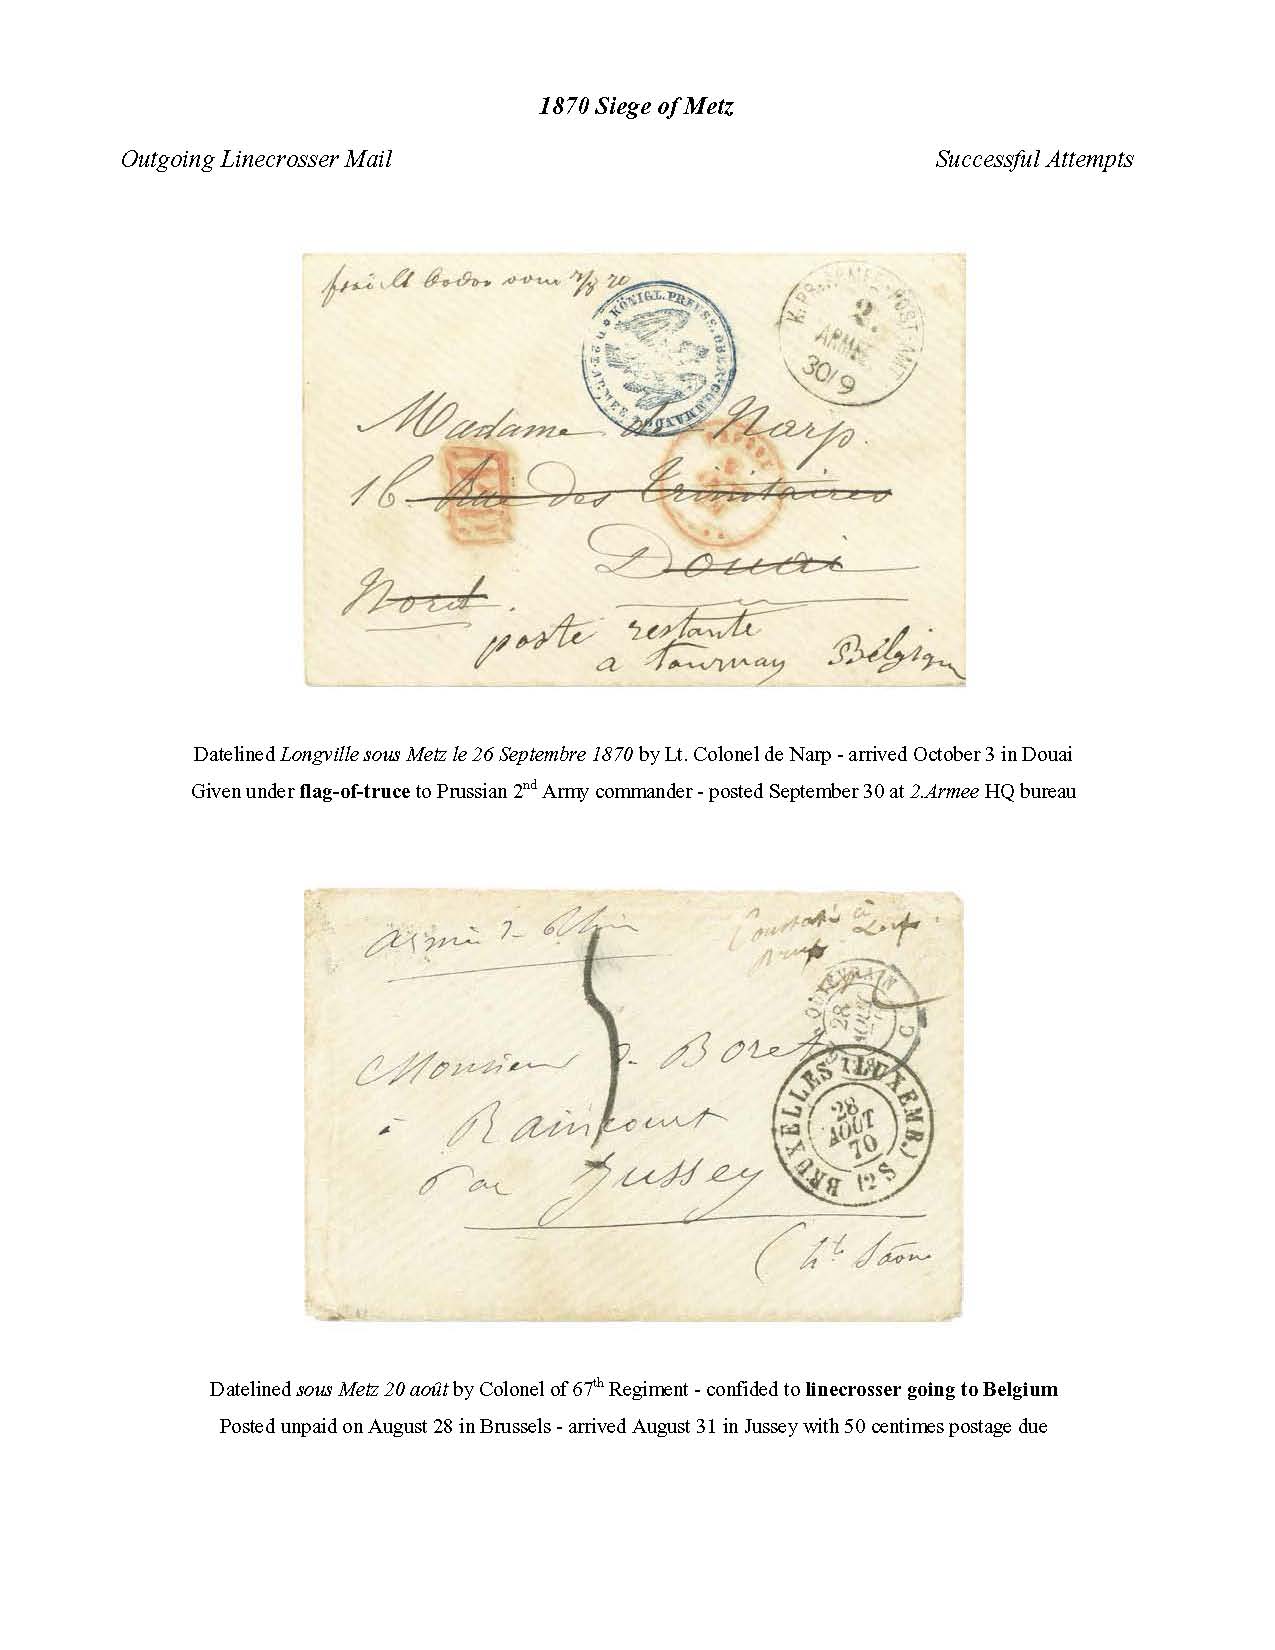 1870 Siege of Metz
Outgoing Linecrosser Mail
Successful Attempts
KÖNIGL. PREUSS. OBER-COMMANDO
K. PR. ARMEE-POST-AMT
2.
ARMEE
30/9
Madame de Narp.
16 Rue des Trinitaires
Douai
Nord.
poste restante
a Tournay Belgique
Datelined Longville sous Metz le 26 Septembre 1870 by Lt. Colonel de Narp - arrived October 3 in Douai
Given under flag-of-truce to Prussian 2nd Army commander - posted September 30 at 2.Armee HQ bureau
5
QUIEVRAIN
28
AOUT
Monsieur de Boret
BRUXELLES (LUXEMB.)
28
AOUT
70
12 S
à Raincourt
par Jussey
(hte Saone
Datelined sous Metz 20 août by Colonel of 67th Regiment - confided to linecrosser going to Belgium
Posted unpaid on August 28 in Brussels - arrived August 31 in Jussey with 50 centimes postage due